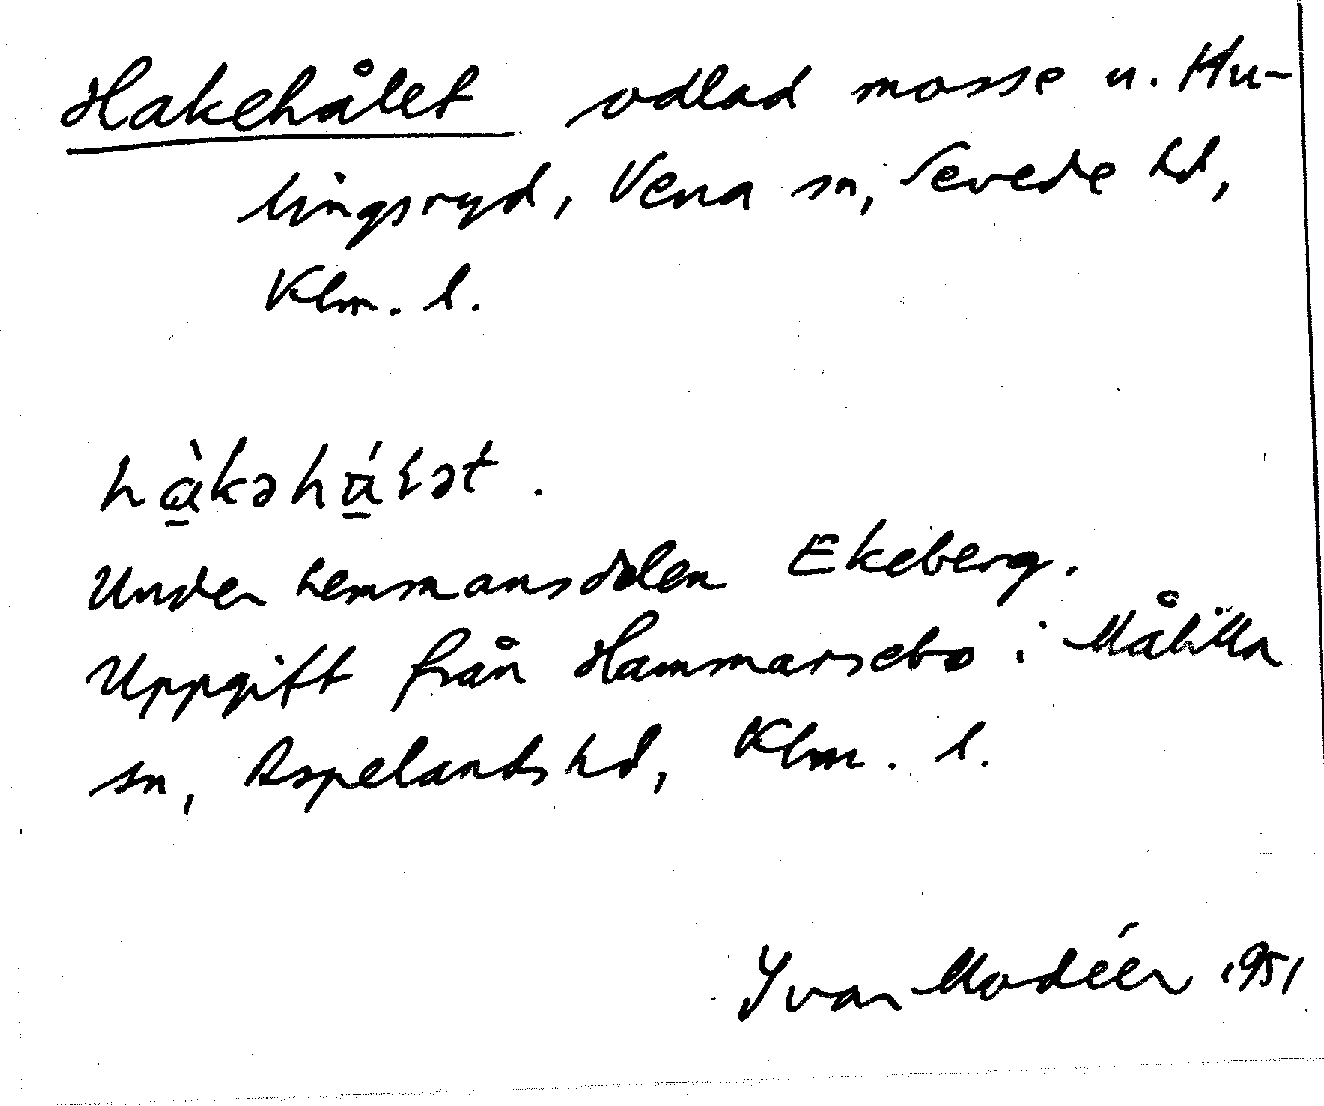 Hakehålet odlad mosse u. Hu-
lingsryd, Vena sn, Sevede hd,
Klm. l.
Under hemmansdelen Ekeberg.
Uppgift från Hammarsebo i Målilla
sn, Aspelands hd, Klm. l.
Yvar Modéer 1951